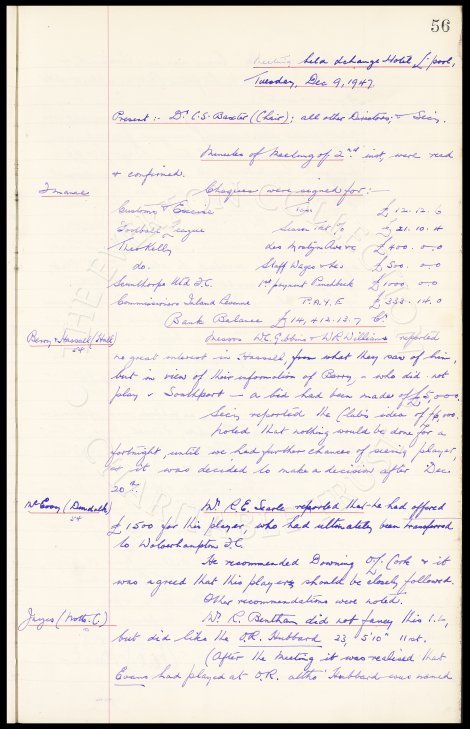 56
Meeting held Exchange Hotel, L'pool,
Tuesday, Dec 9, 1947.
Present :- Dr. C.S. Baxter (Chair); all other Directors; & Secy.
Minutes of Meeting of 2nd inst, were read
& confirmed.
Finance Cheques were signed for:-
Customs & Excise Tax £ 12. 12. 6
Football League Season Tkt £ 21. 10. 4
Theo Kelly £ 400. 0. 0
do. Staff Wages £ 500. 0. 0
Scunthorpe Utd F.C. 1st payment £ 1000. 0. 0
Commissioners Inland Revenue P.A.Y.E £ 333. 14. 0
Bank Balance £ 14,412. 13. 7 Cr
Berry & Hassall (Hull) Messrs W.C. Gibbins & W.R. Williams reported
no great interest in Hassall, from what they saw of him,
but in view of their information of Berry, - who did not
play v Southport - a bid had been made of £5,000.
Secy. reported the Club's idea of £6,000.
Noted that nothing would be done for a
fortnight, until we had further chances of seeing player,
or it was decided to make a decision after Dec
20th.
McEvoy (Dundalk) Mr. R.E. Searle reported that he had offered
£1500 for this player, who had ultimately been transferred
to Wolverhampton F.C.
He recommended Downing of Cork & it
was agreed that this player should be closely followed.
Other recommendations were noted.
Jayes (Notts. C.) Mr. R. Bentham did not fancy this I.L,
but did like the O.R. Hubbard 23, 5'10" 11st.
(After the Meeting it was realised that
Evans had played at O.R. altho' Hubbard was named